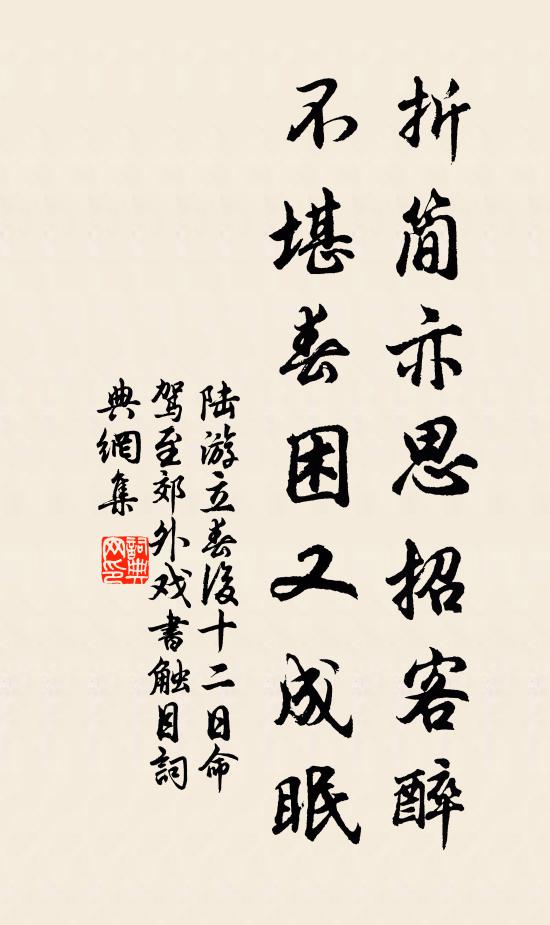 折简亦思招客醉
不堪春困又成眠
陆游立春後十二日命
驾至郊外戏書触目詞
典網集
詞典网印